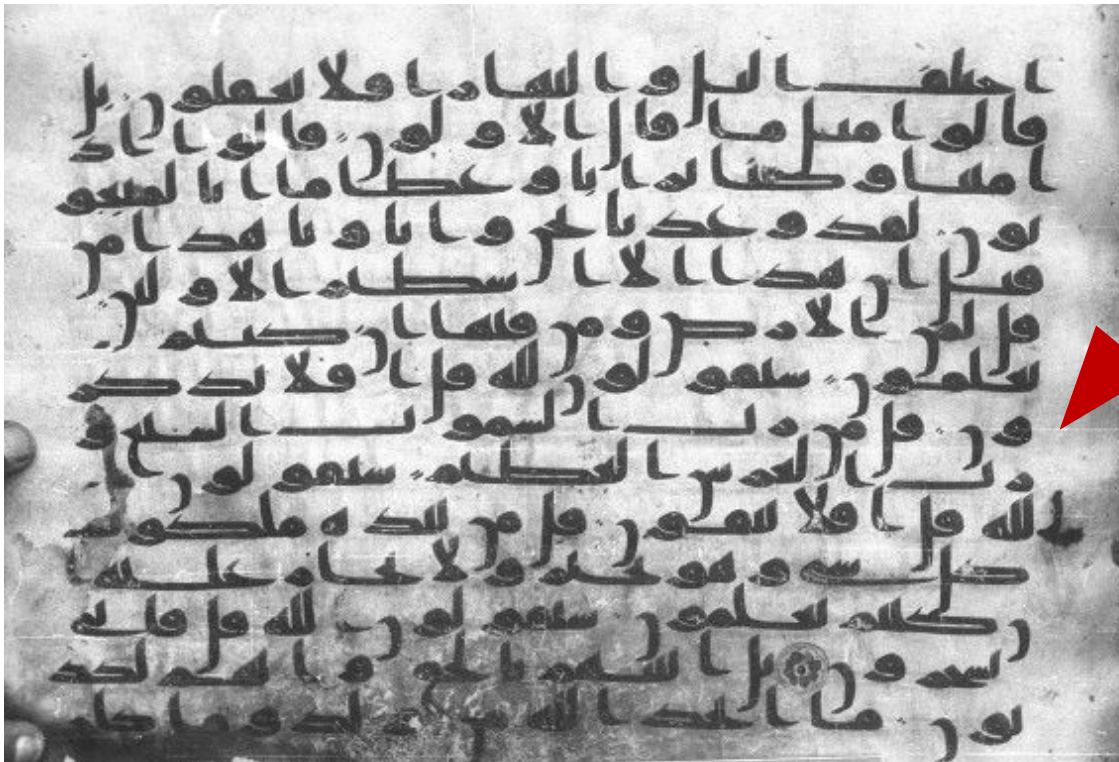 اختلف اليل والنهار افلا تعقلون بل
قالوا مثل ما قال الاولون قالوا اذ
ا متنا وكنا ترابا وعظاما انا لمبعو
ثون لقد وعدنا نحن واباونا هذا من
قبل ان هذا الا اسطير الاولين
قل لمن الارض ومن فيها ان كنتم
تعلمون سيقولون لله قل افلا تذكر
ون قل من رب السموت السبع و
رب العرش العظيم سيقولون
لله قل افلا تتقون قل من بيده ملكوت
كل شى وهو يجير ولا يجار عليه ا
ن كنتم تعلمون سيقولون لله قل فانى
تسحرون بل اتينهم بالحق وانهم لكذ
بون ما اتخذ الله من ولد وما كان